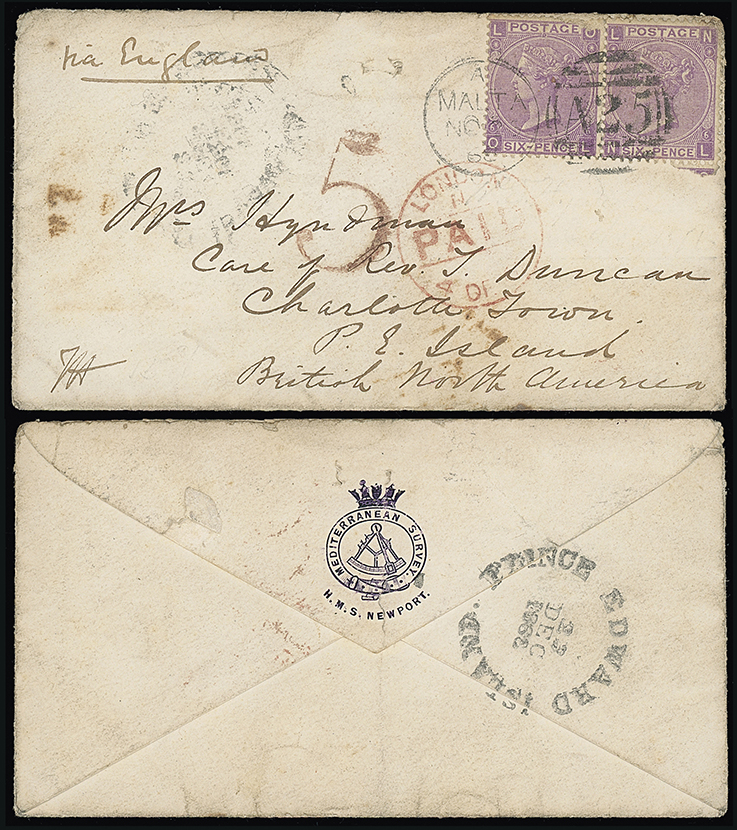 via England
POSTAGE
L O
O L
SIX-PENCE
POSTAGE
L N
N L
SIX-PENCE
6
6
MALTA
NO
A25
5
LONDON
PAID
Mrs Hyndman
Care of Rev. T. Duncan
Charlotte Town
P. E. Island
British North America
MEDITERRANEAN SURVEY.
H.M.S. NEWPORT.
PRINCE EDWARD ISLAND.
DEC
1868